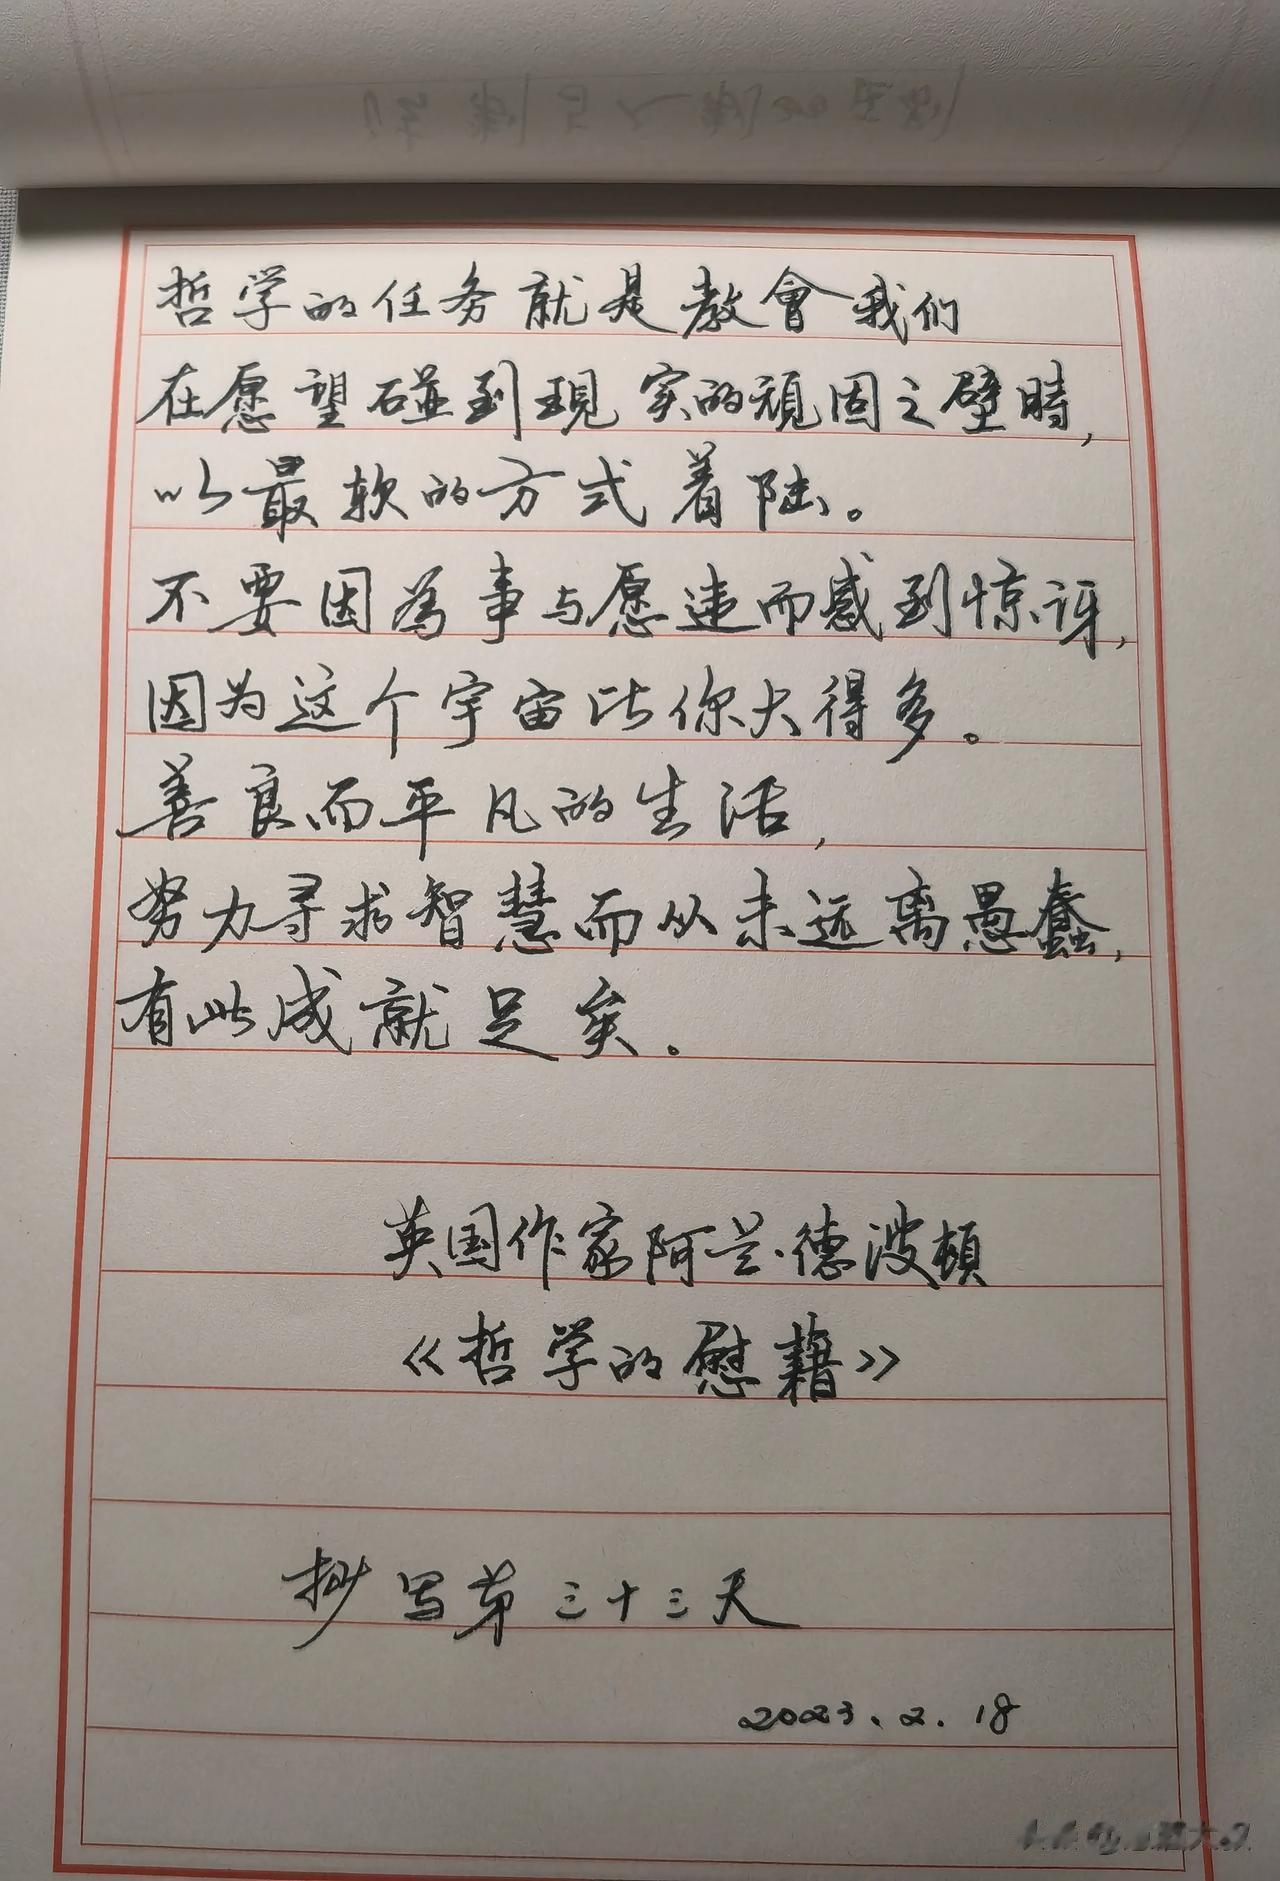 哲学的任务就是教會我们
在愿望碰到現实的頑固之壁時,
以最软的方式着陆。
不要因為事与愿违而感到惊讶,
因为这个宇宙比你大得多。
善良而平凡的生活,
努力寻求智慧而从未远离愚蠢,
有此成就足矣。
英国作家阿兰·德波頓
《哲学的慰藉》
抄写第三十三天
2023.2.18